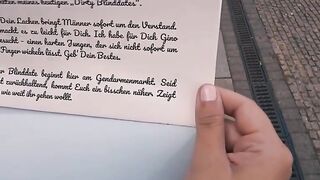 meines heutigen „Dirty Blinddates".
Dein Lachen bringt Männer sofort um den Verstand.
macht es zu leicht für Dich. Ich habe für Dich Gino
macht - einen harten Jungen, der sich nicht sofort um
Finger wickeln lässt. Geb' Dein Bestes.
er Blinddate beginnt hier am Gendarmenmarkt. Seid
t zurückhaltend, kommt Euch ein bisschen näher. Zeigt
wie weit ihr gehen wollt.